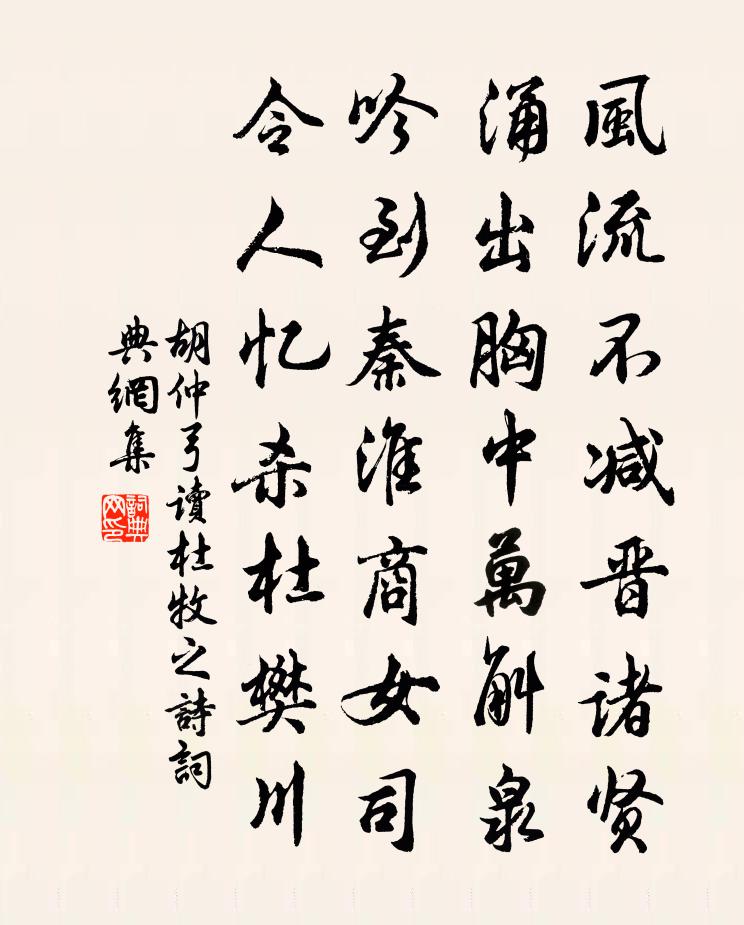 風流不减晋诸贤
涌出胸中萬斛泉
吟到秦淮商女司
令人忆杀杜樊川
胡仲弓讀杜牧之詩詞
典網集
詞典網印